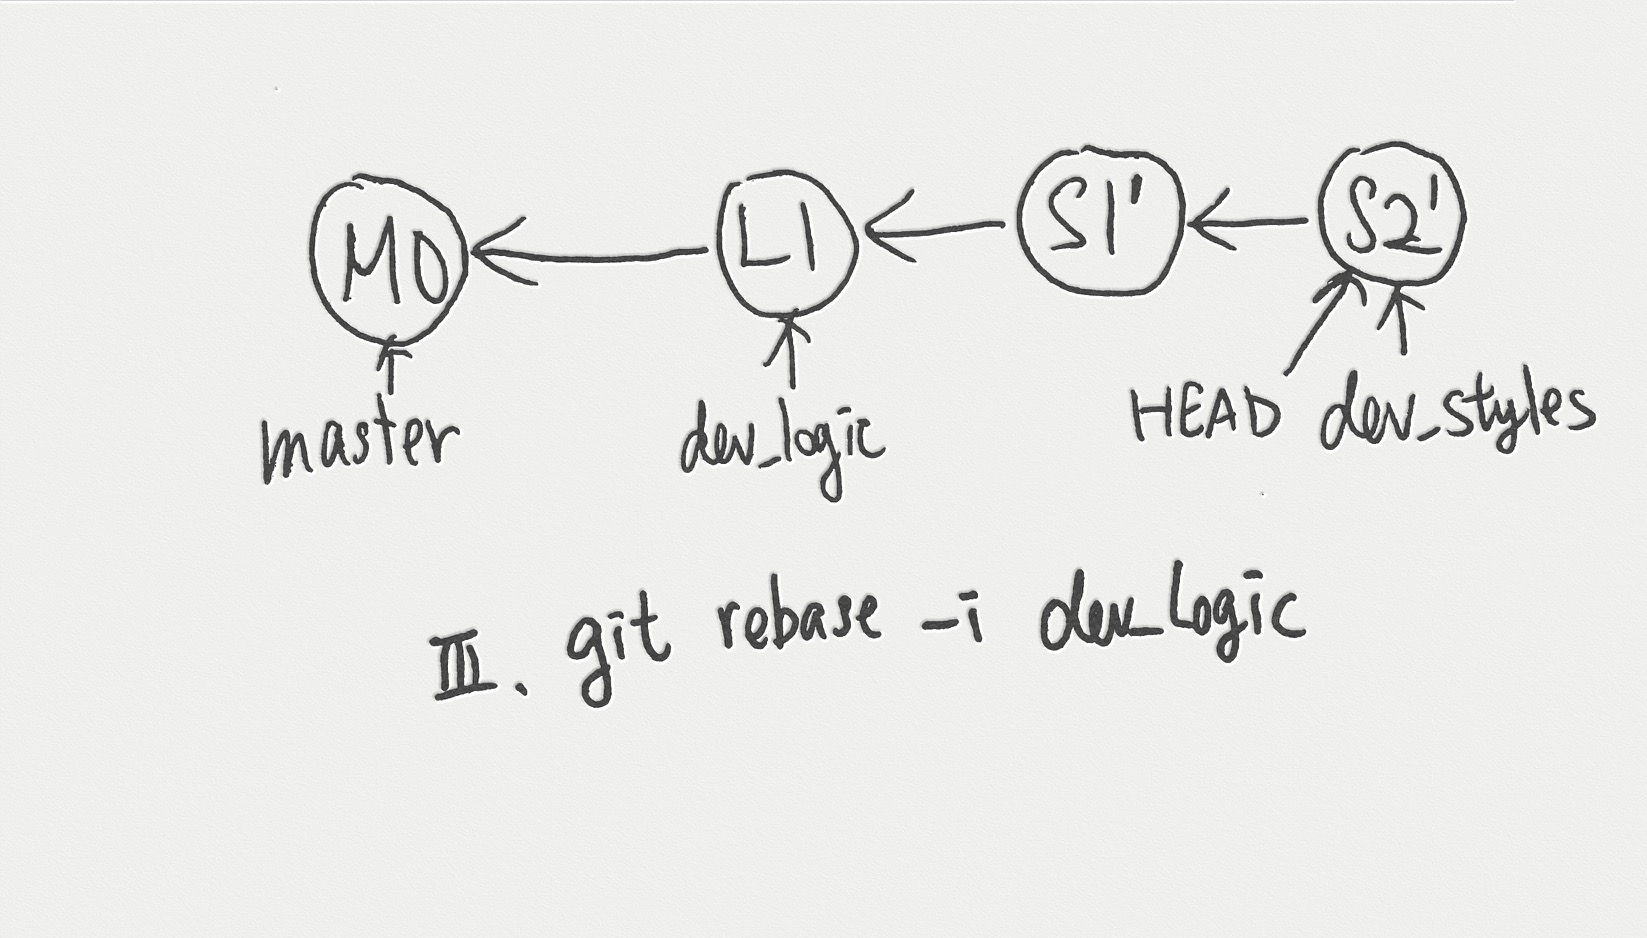 M0 L1 S1' S2'
master dev_logic HEAD dev_styles
III. git rebase -i dev_logic